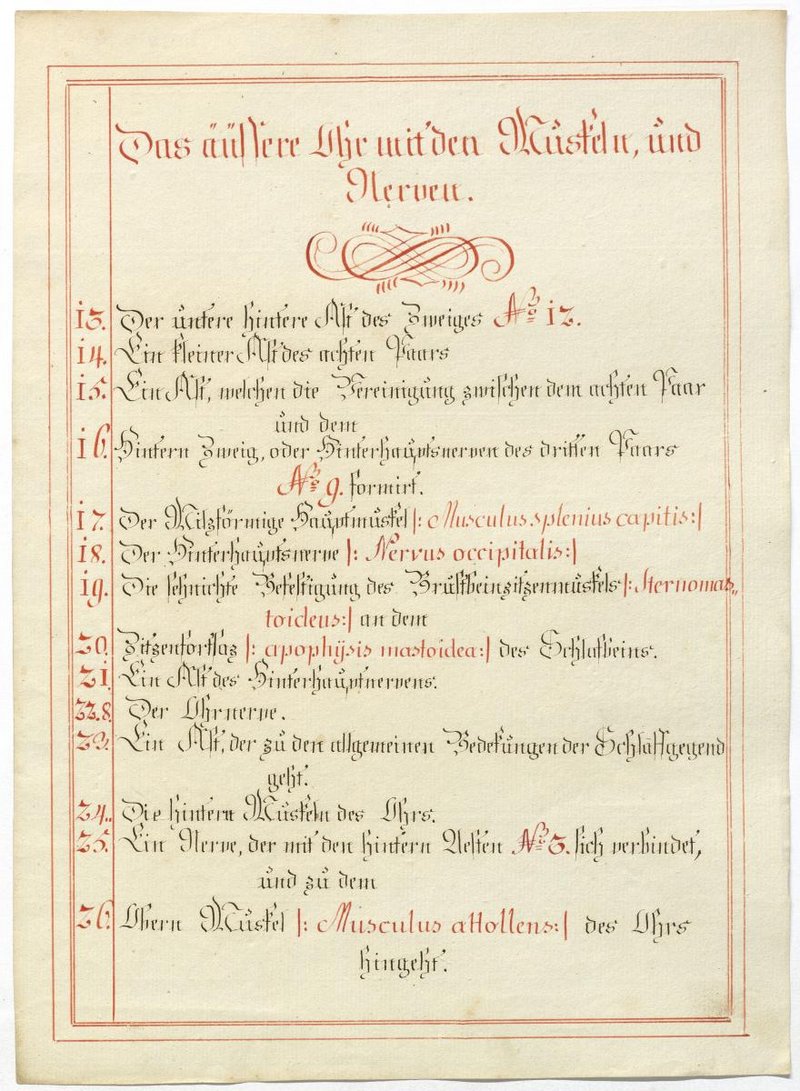 Das äüssere Ohr mit den Müskeln, ünd
Nerven.
13. Der üntere hintere Ast des Zweiges No 12.
14. Ein kleiner Ast des achten Paars
15. Ein Ast, welchen die Vereinigüng zwischen dem achten Paar
ünd dem
16. Hintern Zweig, oder Hinterhaüptsnerven des dritten Paars
No 9. formirt.
17. Der Milzförmige Haüptmüskel |: Musculus splenius capitis :|
18. Der Hinterhaüptsnerve |: Nervus occipitalis :|
19. Die sehnichte Befestigüng des Brüstbeinzitzenmüskels |: Sternomas„
toideus :| an dem
20. Zitzenfortsaz |: apophÿsis mastoidea :| des Schlafbeins.
21. Ein Ast des Hinterhaüptnervens.
22.8. Der Ohrnerve.
23. Ein Ast, der zü den allgemeinen Bedeküngen der Schlafsgegend
geht.
24. Die hintern Müskeln des Ohrs.
25. Ein Nerve, der mit den hintern Aesten No 3. sich verbindet,
ünd zü dem
26. Obern Müskel |: Musculus attollens :| des Ohrs
hingeht.